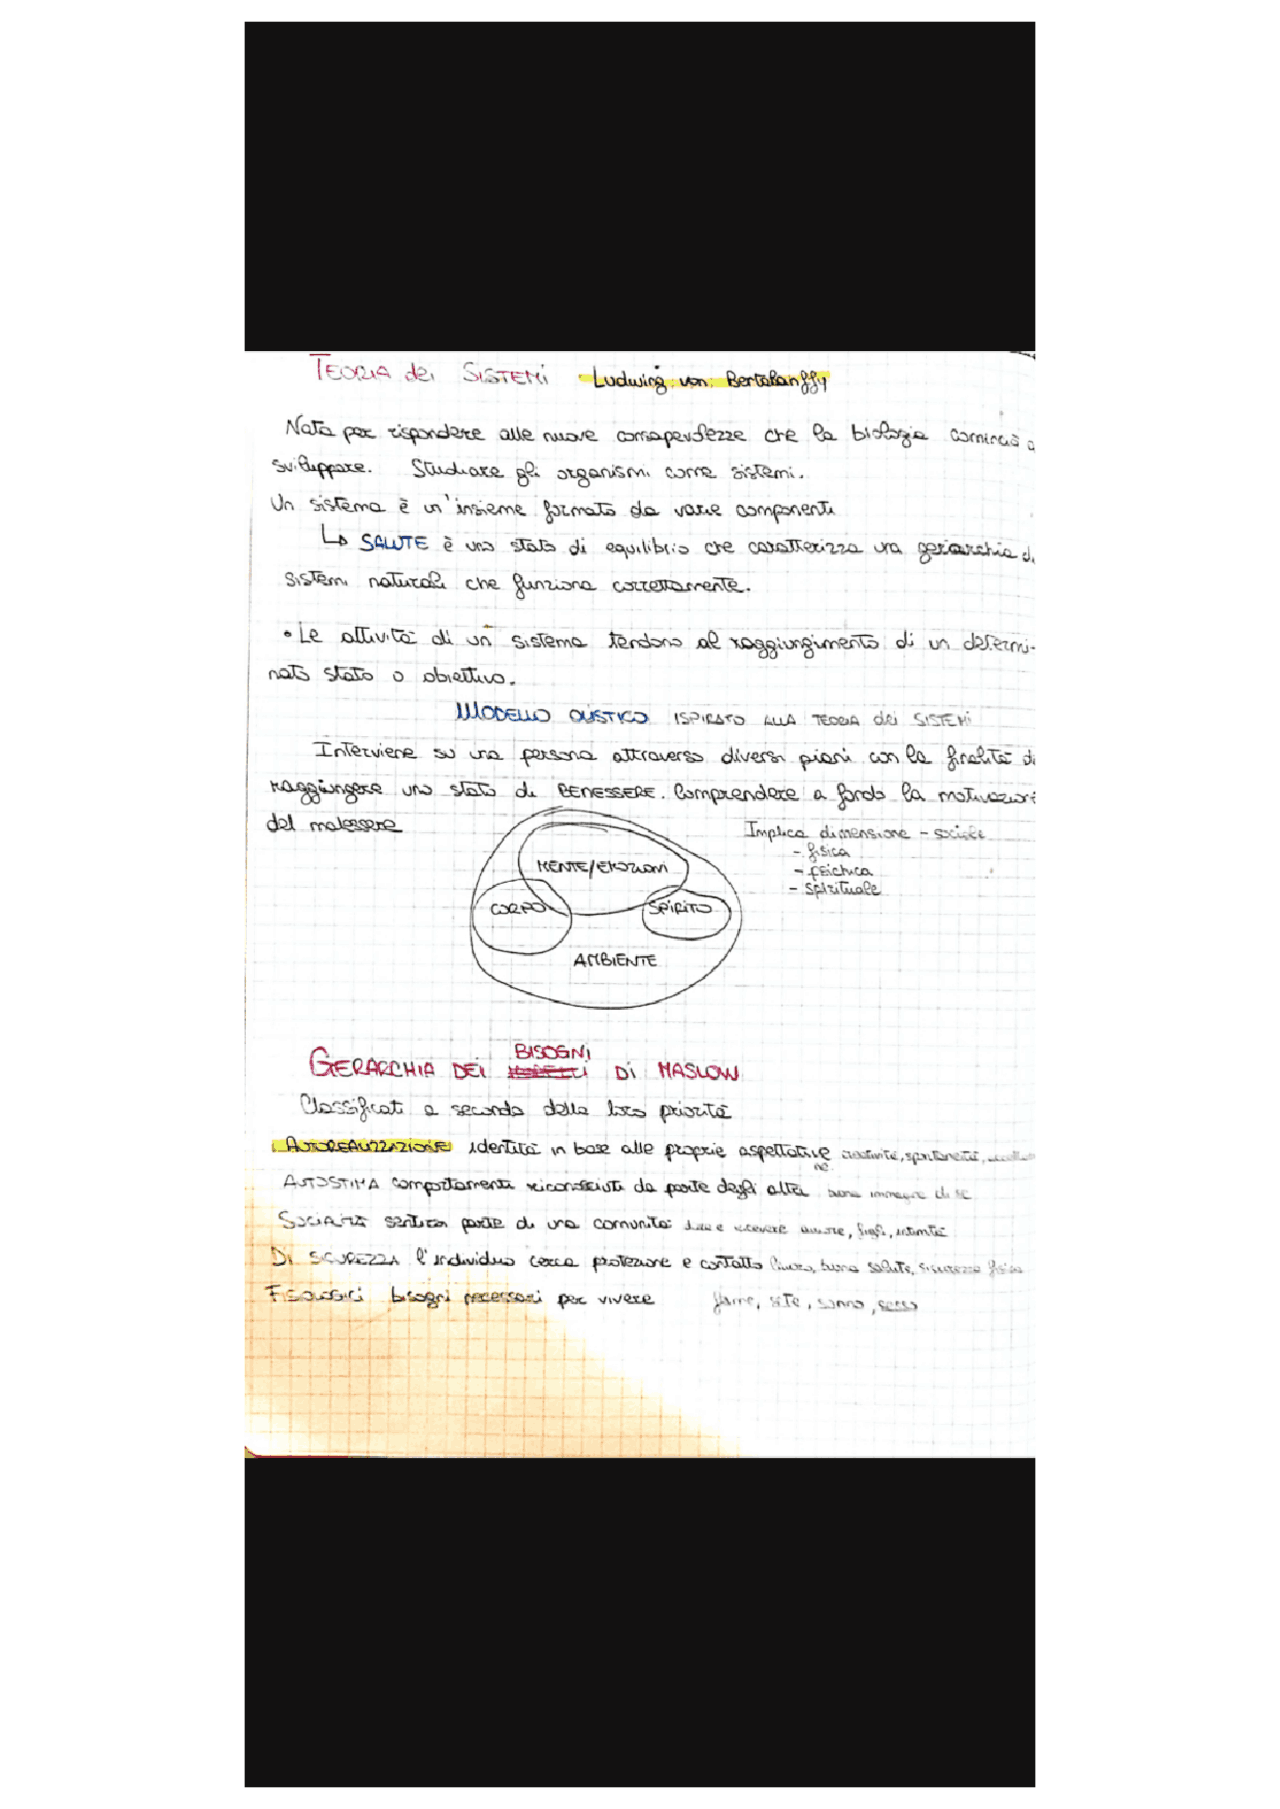 TEORIA dei SISTEMI Ludwing von Bertalanffy
Nata per rispondere alle nuove consapevolezze che la biologia cominciò a
sviluppare. Studiare gli organismi come sistemi.
Un sistema è un'insieme formato da varie componenti
↳ SALUTE è uno stato di equilibrio che caratterizza una gerarchia di
sistemi naturali che funziona correttamente.
• Le attività di un sistema tendono al raggiungimento di un determi-
nato stato o obiettivo.
MODELLO OLISTICO ISPIRATO ALLA TEORIA dei SISTEMI
Interviene su una persona attraverso diversi piani con la finalità di
raggiungere uno stato di BENESSERE. Comprendere a fondo la motivazioni
del malessere
Implica dimensione - sociale
- fisica
- psichica
- spirituale
MENTE/EMOZIONI
CORPO
SPIRITO
AMBIENTE
BISOGNI
GERARCHIA DEI DI MASLOW
Classificati a seconda della loro priorità
AUTOREALIZZAZIONE identità in base alle proprie aspettative creatività, spontaneità,
AUTOSTIMA comportamenti riconosciuti da parte degli altri buona immagine di se
SOCIALITÀ sentirsi parte di una comunità dare e ricevere amore, figli, intimità
DI SICUREZZA l'individuo cerca protezione e contatto lavoro, buona salute, sicurezza fisica
FISIOLOGICI bisogni necessari per vivere fame, sete, sonno, sesso